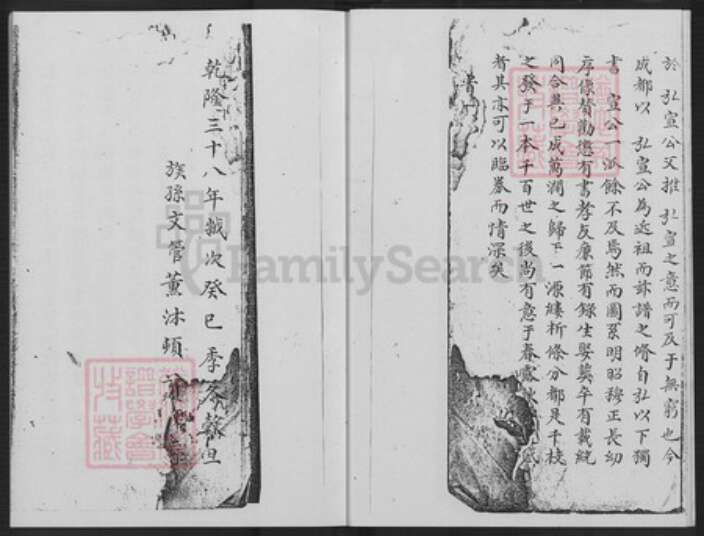 於 弘宣公又推 弘宣之意而可及于無窮也今
成都以 弘宣公為近祖而詠譜之脩自弘以下獨
書 宣公一派餘不及焉然而圖系明昭穆正長幼
序像贊勸懲有書孝友廉節有錄生娶葬卒有載統
同合異已成萬潤之歸下一源縷析條分都是千枝
之發于一本千百世之後尚有意于春露
者其亦可以臨券而情深矣
乾隆三十八年歲次癸巳季冬穀旦
族孫文管薰沐頓
FamilySearch